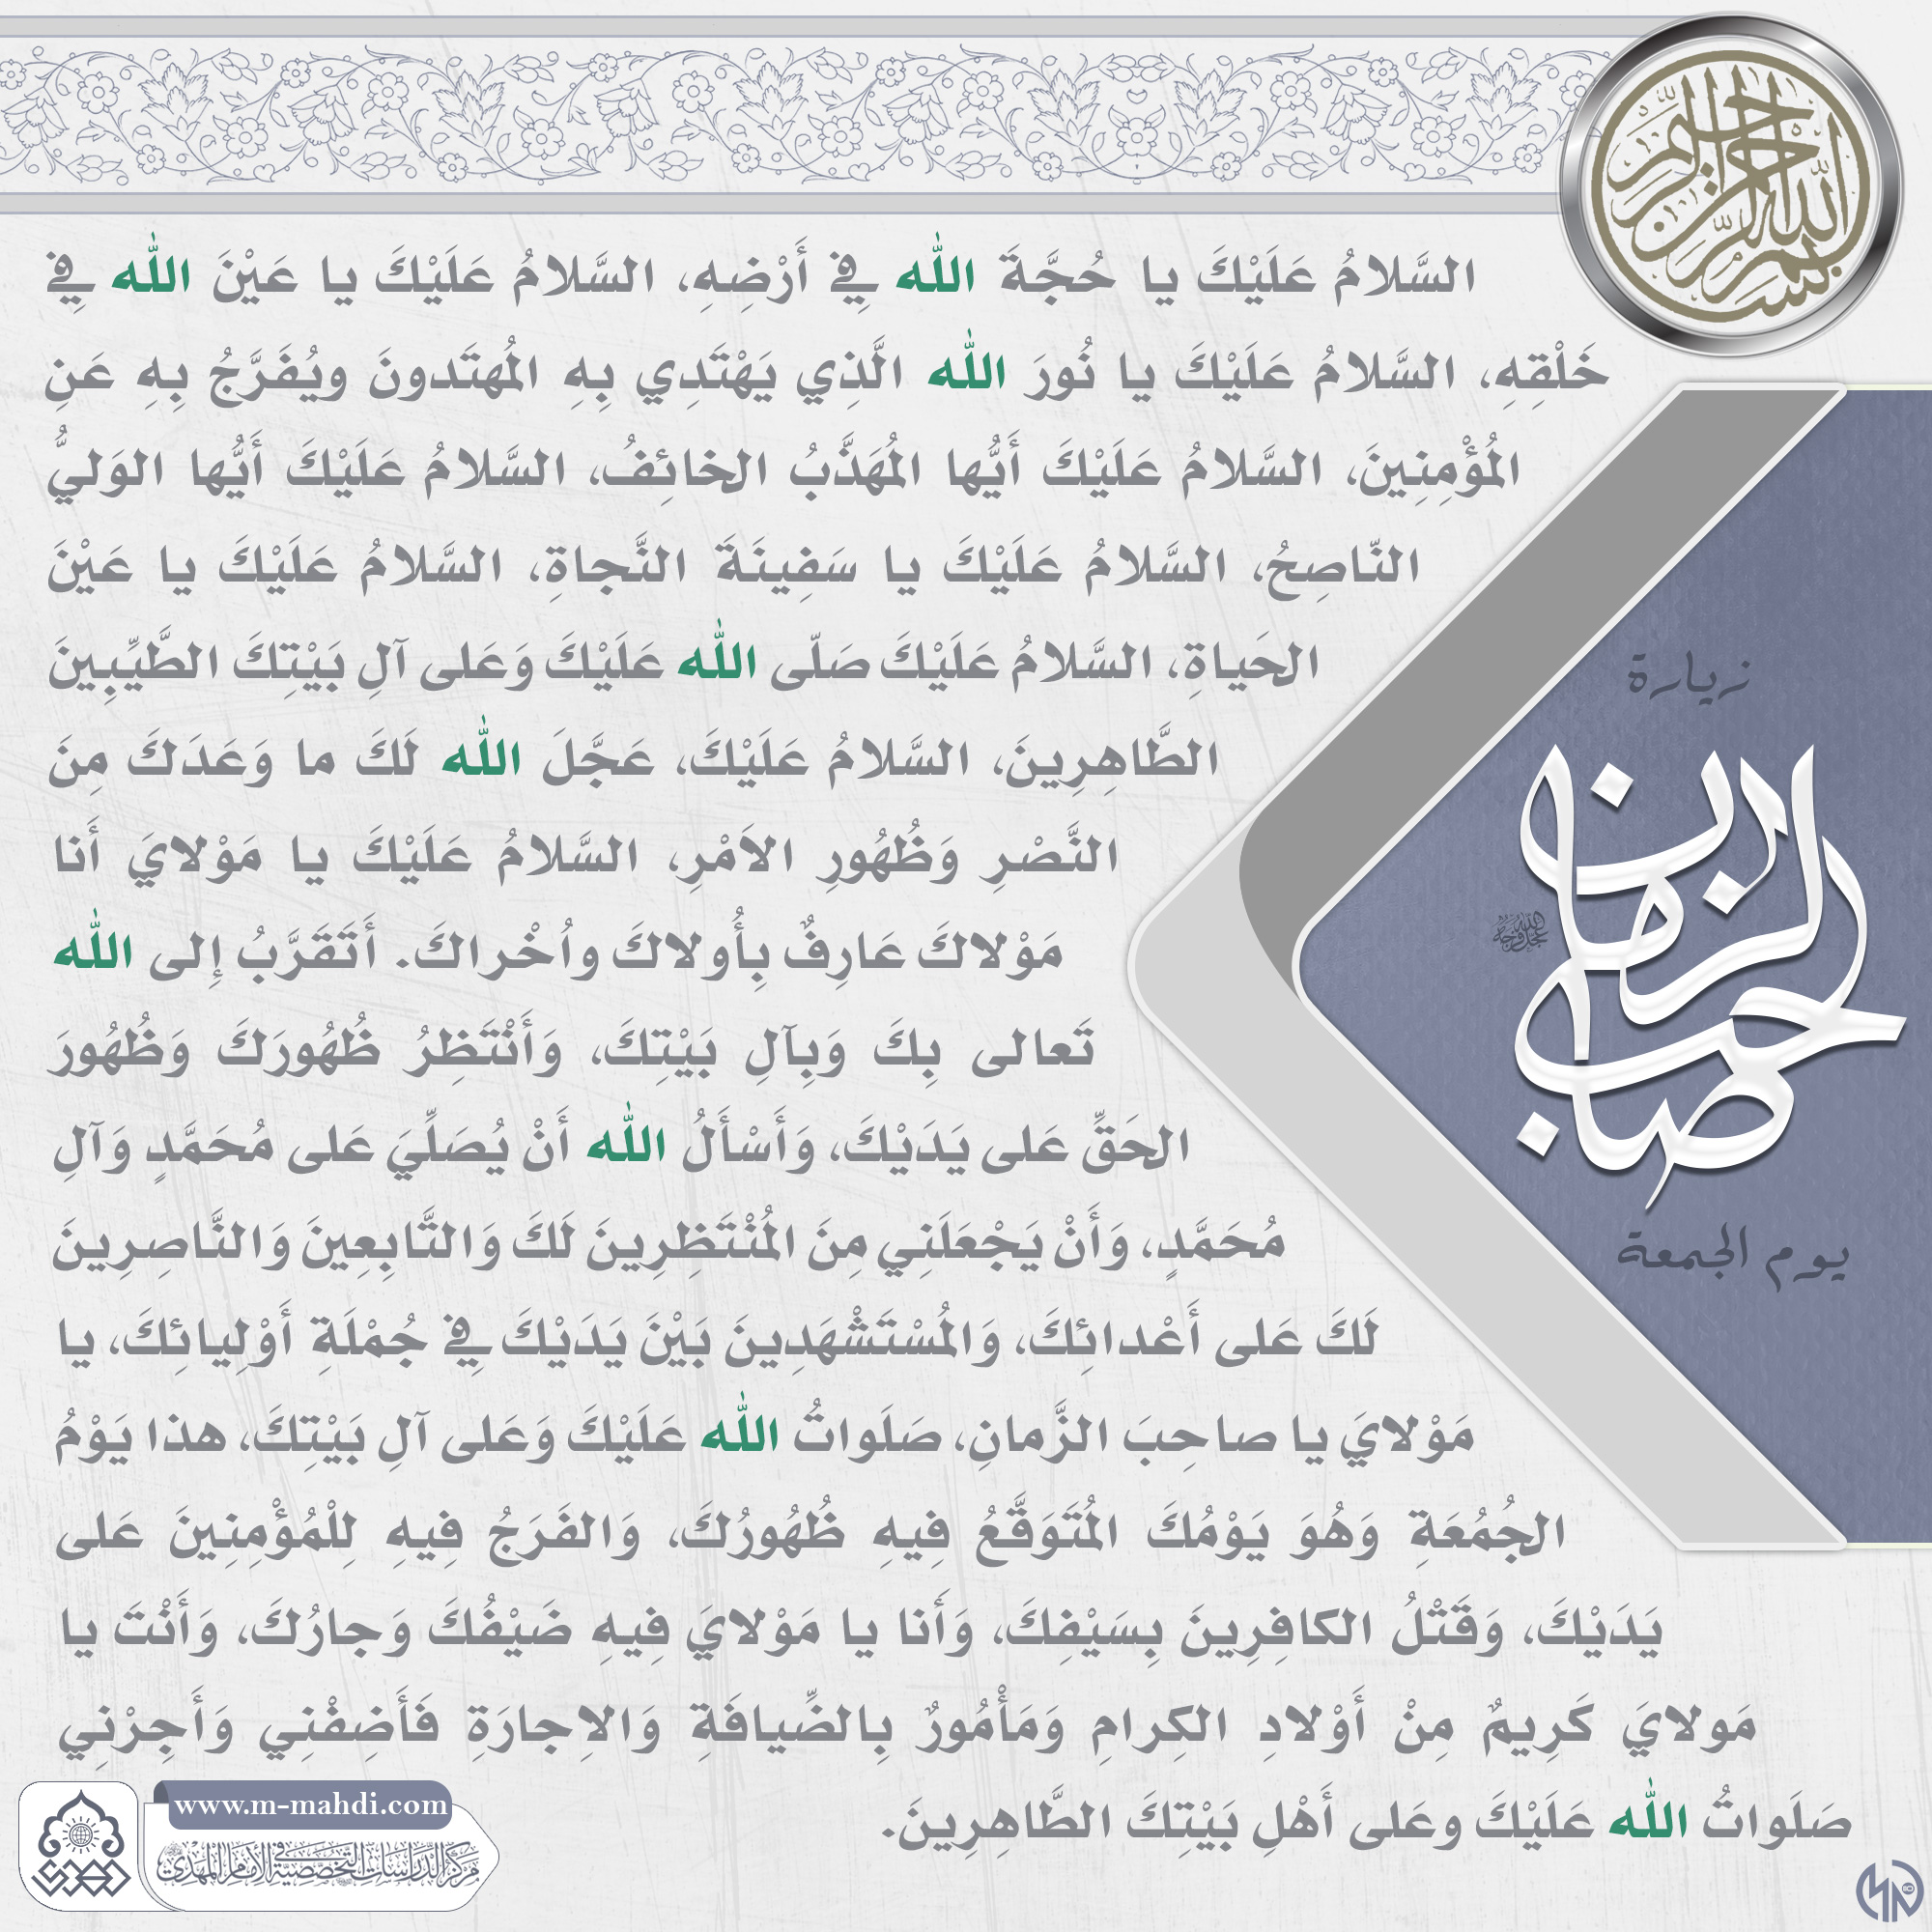 بسم الله الرحمن الرحيم
السَّلامُ عَلَيْكَ يا حُجَّةَ الله فِي أَرْضِهِ، السَّلامُ عَلَيْكَ يا عَيْنَ الله فِي
خَلْقِهِ، السَّلامُ عَلَيْكَ يا نُورَ الله الَّذِي يَهْتَدِي بِهِ المُهتَدونَ ويُفَرَّجُ بِهِ عَنِ
المُؤْمِنِينَ، السَّلامُ عَلَيْكَ أَيُّها المُهَذَّبُ الخائِفُ، السَّلامُ عَلَيْكَ أَيُّها الوَليُّ
النّاصِحُ، السَّلامُ عَلَيْكَ يا سَفِينَةَ النَّجاةِ، السَّلامُ عَلَيْكَ يا عَيْنَ
الحَياةِ، السَّلامُ عَلَيْكَ صَلّى الله عَلَيْكَ وَعَلى آلِ بَيْتِكَ الطَّيِّبِينَ
الطَّاهِرِينَ، السَّلامُ عَلَيْكَ، عَجَّلَ الله لَكَ ما وَعَدَكَ مِنَ
النَّصْرِ وَظُهُورِ الاَمْرِ، السَّلامُ عَلَيْكَ يا مَوْلايَ أَنا
مَوْلاكَ عَارِفٌ بِأُولاكَ واُخْراكَ. أَتَقَرَّبُ إِلى الله
تَعالى بِكَ وَبِآلِ بَيْتِكَ، وَأَنْتَظِرُ ظُهُورَكَ وَظُهُورَ
الحَقِّ عَلى يَدَيْكَ، وَأَسْأَلُ الله أَنْ يُصَلِّيَ عَلى مُحَمَّدٍ وَآلِ
مُحَمَّدٍ، وَأَنْ يَجْعَلَنِي مِنَ المُنْتَظِرِينَ لَكَ وَالتَّابِعِينَ وَالنَّاصِرِينَ
لَكَ عَلى أَعْدائِكَ، وَالمُسْتَشْهَدِينَ بَيْنَ يَدَيْكَ فِي جُمْلَةِ أَوْلِيائِكَ، يا
مَوْلايَ يا صاحِبَ الزَّمانِ، صَلَواتُ الله عَلَيْكَ وَعَلى آلِ بَيْتِكَ، هذا يَوْمُ
الجُمُعَةِ وَهُوَ يَوْمُكَ المُتَوَقَّعُ فِيهِ ظُهُورُكَ، وَالفَرَجُ فِيهِ لِلْمُؤْمِنِينَ عَلى
يَدَيْكَ، وَقَتْلُ الكافِرِينَ بِسَيْفِكَ، وَأَنا يا مَوْلايَ فِيهِ ضَيْفُكَ وَجارُكَ، وَأَنْتَ يا
مَولايَ كَرِيمٌ مِنْ أَوْلادِ الكِرامِ وَمَأْمُورٌ بِالضِّيافَةِ وَالاِجارَةِ فَأَضِفْنِي وَأَجِرْنِي
صَلَواتُ الله عَلَيْكَ وعَلى أَهْلِ بَيْتِكَ الطَّاهِرِينَ.
زيارة
صاحب الزمان
عجل الله فرجه
يوم الجمعة
www.m-mahdi.com
مركز الدراسات التخصصية في الإمام المهدي